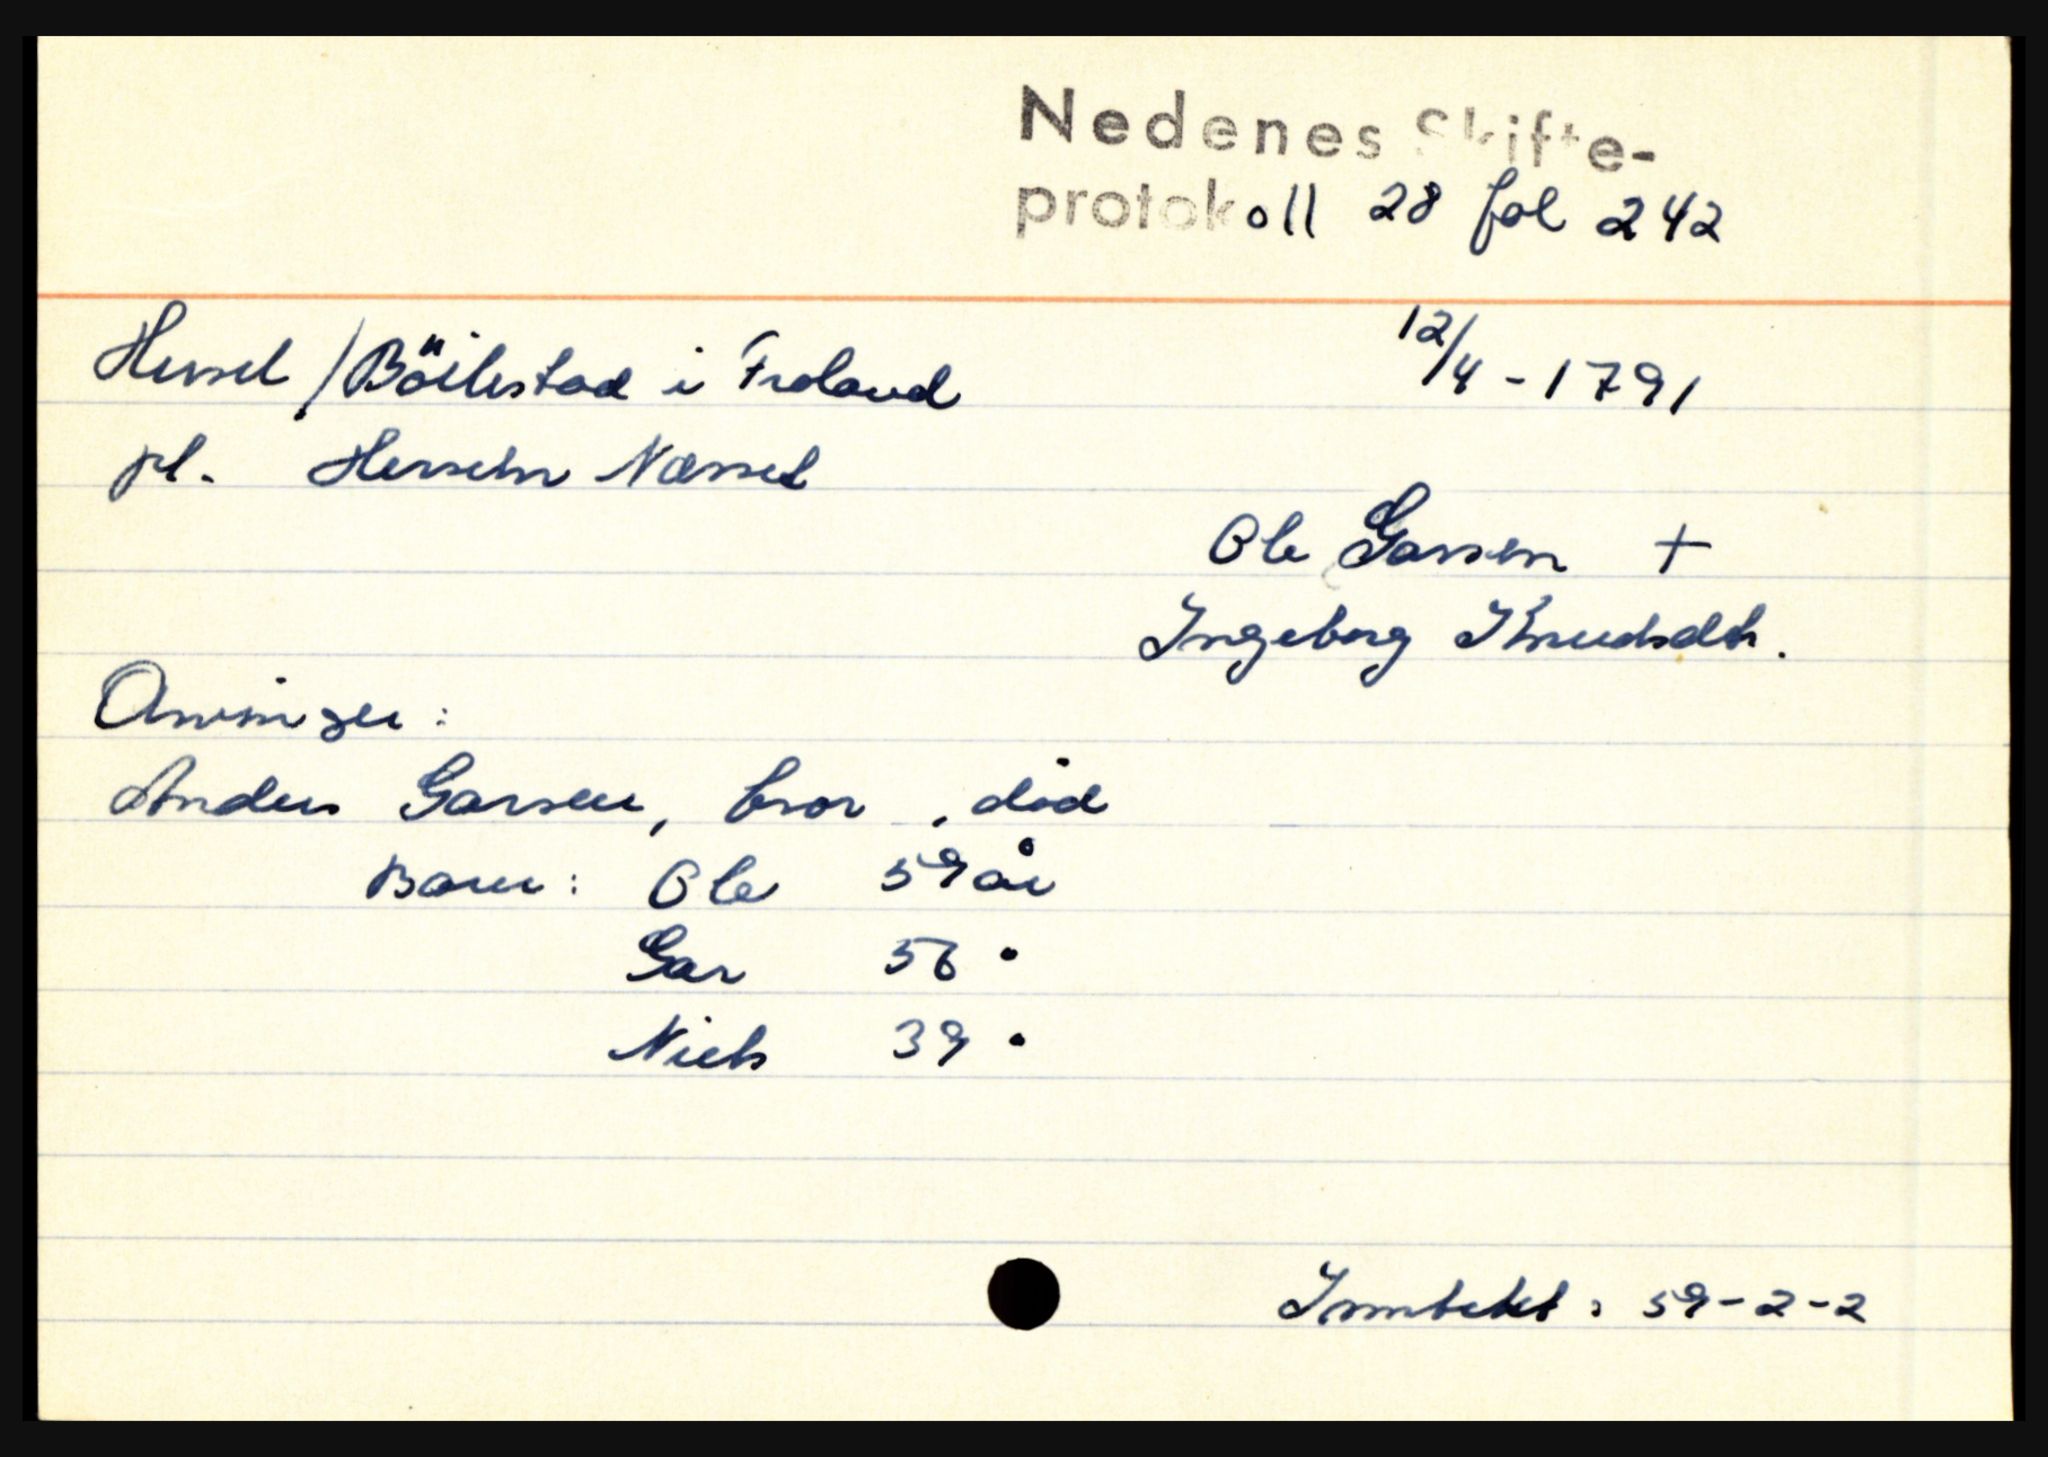 Nedenes Skifte-
protokoll 28 fol 242
Hessel / Böilestad i Froland 12/4 - 1791
pl. Hersehn Næssel
Ole Garsen +
Ingeborg Knudsdtr.
Arvinger:
Anders Garsen, bror, død
Barn: Ole 59 år
Gar 56 "
Niels 39 "
Inntekt: 59-2-2